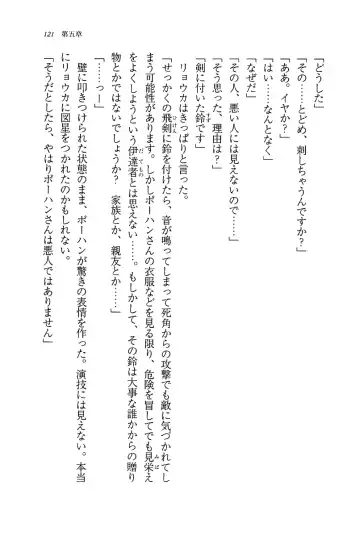 121　第五章
「どうした」
「その……とどめ、刺しちゃうんですか?」
「ああ。イヤか?」
「はい……なんとなく」
「なぜだ」
「その人、悪い人には見えないので……」
「そう思った、理由は?」
「剣に付いた鈴です」
　リョウカはきっぱりと言った。
「せっかくの飛剣に鈴を付けたら、音が鳴ってしまって死角からの攻撃でも敵に気づかれてし
まう可能性があります。しかしボーハンさんの衣服などを見る限り、危険を冒してでも見栄え
をよくしようという伊達者とは思えない……。もしかして、その鈴は大事な誰かからの贈り
物とかではないでしょうか?　家族とか、親友とか……」
「……っー」
　壁に叩きつけられた状態のまま、ボーハンが驚きの表情を作った。演技には見えない。本当
にリョウカに図星をつかれたのかもしれない。
「そうだとしたら、やはりボーハンさんは悪人ではありません」